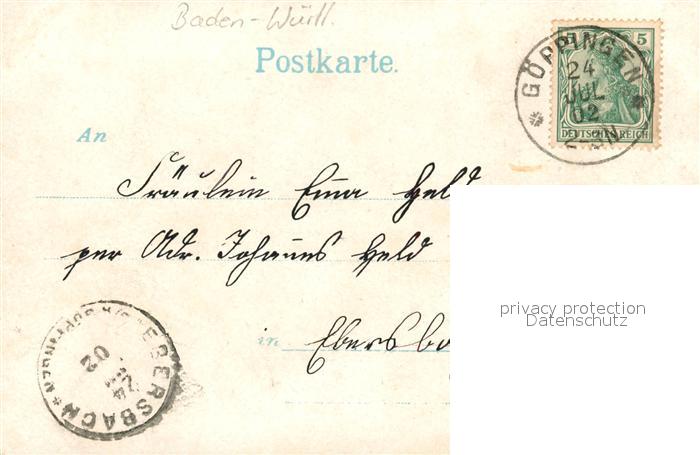 Baden-Württ.
Postkarte.
GÖPPINGEN
24
JUL
02
5
DEUTSCHES REICH
An
Fräulein Emma Held
per Adr. Johanns Held
in Ebersba
EBERSBACH
24
02
privacy protection
Datenschutz